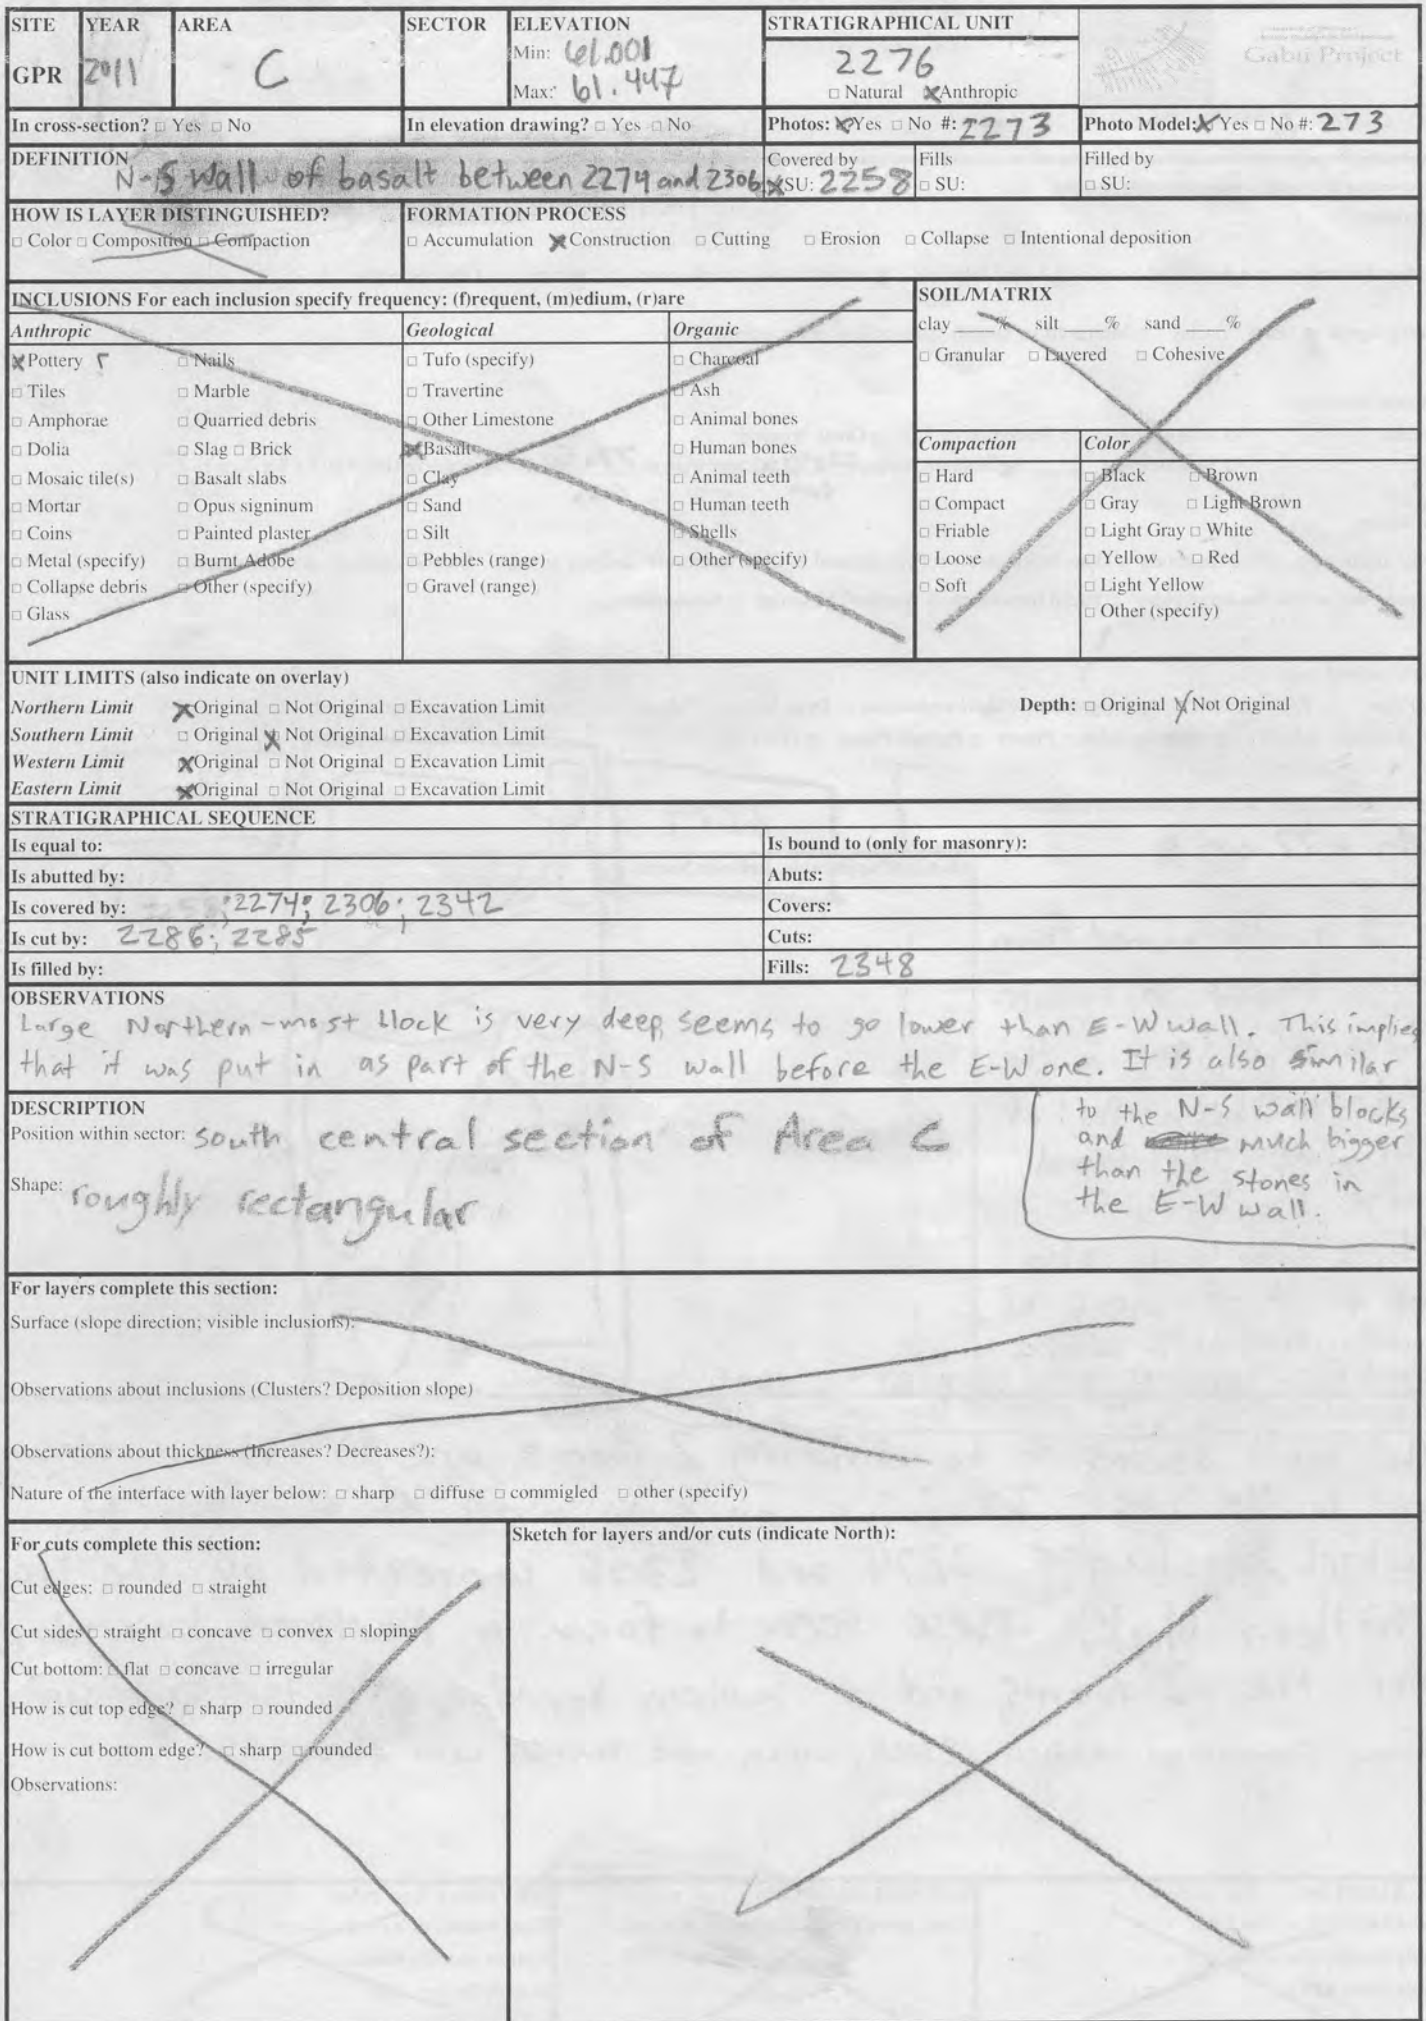 SITE YEAR AREA SECTOR ELEVATION STRATIGRAPHICAL UNIT
GPR 2011 C Min: 61.001 2276
Max: 61.447 □ Natural ☒ Anthropic
Gabii Project
In cross-section? □ Yes □ No In elevation drawing? □ Yes □ No Photos: ☒ Yes □ No #: 2273 Photo Model: ☒ Yes □ No #: 273
DEFINITION N-S wall of basalt between 2274 and 2306
Covered by ☒ SU: 2258 Fills □ SU: Filled by □ SU:
HOW IS LAYER DISTINGUISHED?
□ Color □ Composition □ Compaction
FORMATION PROCESS
□ Accumulation ☒ Construction □ Cutting □ Erosion □ Collapse □ Intentional deposition
INCLUSIONS For each inclusion specify frequency: (f)requent, (m)edium, (r)are
Anthropic
☒ Pottery r □ Nails
□ Tiles □ Marble
□ Amphorae □ Quarried debris
□ Dolia □ Slag □ Brick
□ Mosaic tile(s) □ Basalt slabs
□ Mortar □ Opus signinum
□ Coins □ Painted plaster
□ Metal (specify) □ Burnt Adobe
□ Collapse debris □ Other (specify)
□ Glass
Geological
□ Tufo (specify)
□ Travertine
□ Other Limestone
☒ Basalt
□ Clay
□ Sand
□ Silt
□ Pebbles (range)
□ Gravel (range)
Organic
□ Charcoal
□ Ash
□ Animal bones
□ Human bones
□ Animal teeth
□ Human teeth
□ Shells
□ Other (specify)
SOIL/MATRIX
clay ____% silt ____% sand ____%
□ Granular □ Layered □ Cohesive
Compaction
□ Hard
□ Compact
□ Friable
□ Loose
□ Soft
Color
□ Black □ Brown
□ Gray □ Light Brown
□ Light Gray □ White
□ Yellow □ Red
□ Light Yellow
□ Other (specify)
UNIT LIMITS (also indicate on overlay)
Northern Limit ☒ Original □ Not Original □ Excavation Limit Depth: □ Original ☒ Not Original
Southern Limit □ Original ☒ Not Original □ Excavation Limit
Western Limit ☒ Original □ Not Original □ Excavation Limit
Eastern Limit ☒ Original □ Not Original □ Excavation Limit
STRATIGRAPHICAL SEQUENCE
Is equal to: Is bound to (only for masonry):
Is abutted by: Abuts:
Is covered by: ; 2274; 2306; 2342 Covers:
Is cut by: 2286; 2285 Cuts:
Is filled by: Fills: 2348
OBSERVATIONS
Large Northern-most block is very deep, seems to go lower than E-W wall. This implies
that it was put in as part of the N-S wall before the E-W one. It is also similar
to the N-S wall blocks
and much bigger
than the stones in
the E-W wall.
DESCRIPTION
Position within sector: south central section of Area C
Shape: roughly rectangular
For layers complete this section:
Surface (slope direction; visible inclusions):
Observations about inclusions (Clusters? Deposition slope)
Observations about thickness (Increases? Decreases?):
Nature of the interface with layer below: □ sharp □ diffuse □ commigled □ other (specify)
For cuts complete this section:
Cut edges: □ rounded □ straight
Cut sides □ straight □ concave □ convex □ sloping
Cut bottom: □ flat □ concave □ irregular
How is cut top edge? □ sharp □ rounded
How is cut bottom edge? □ sharp □ rounded
Observations:
Sketch for layers and/or cuts (indicate North):